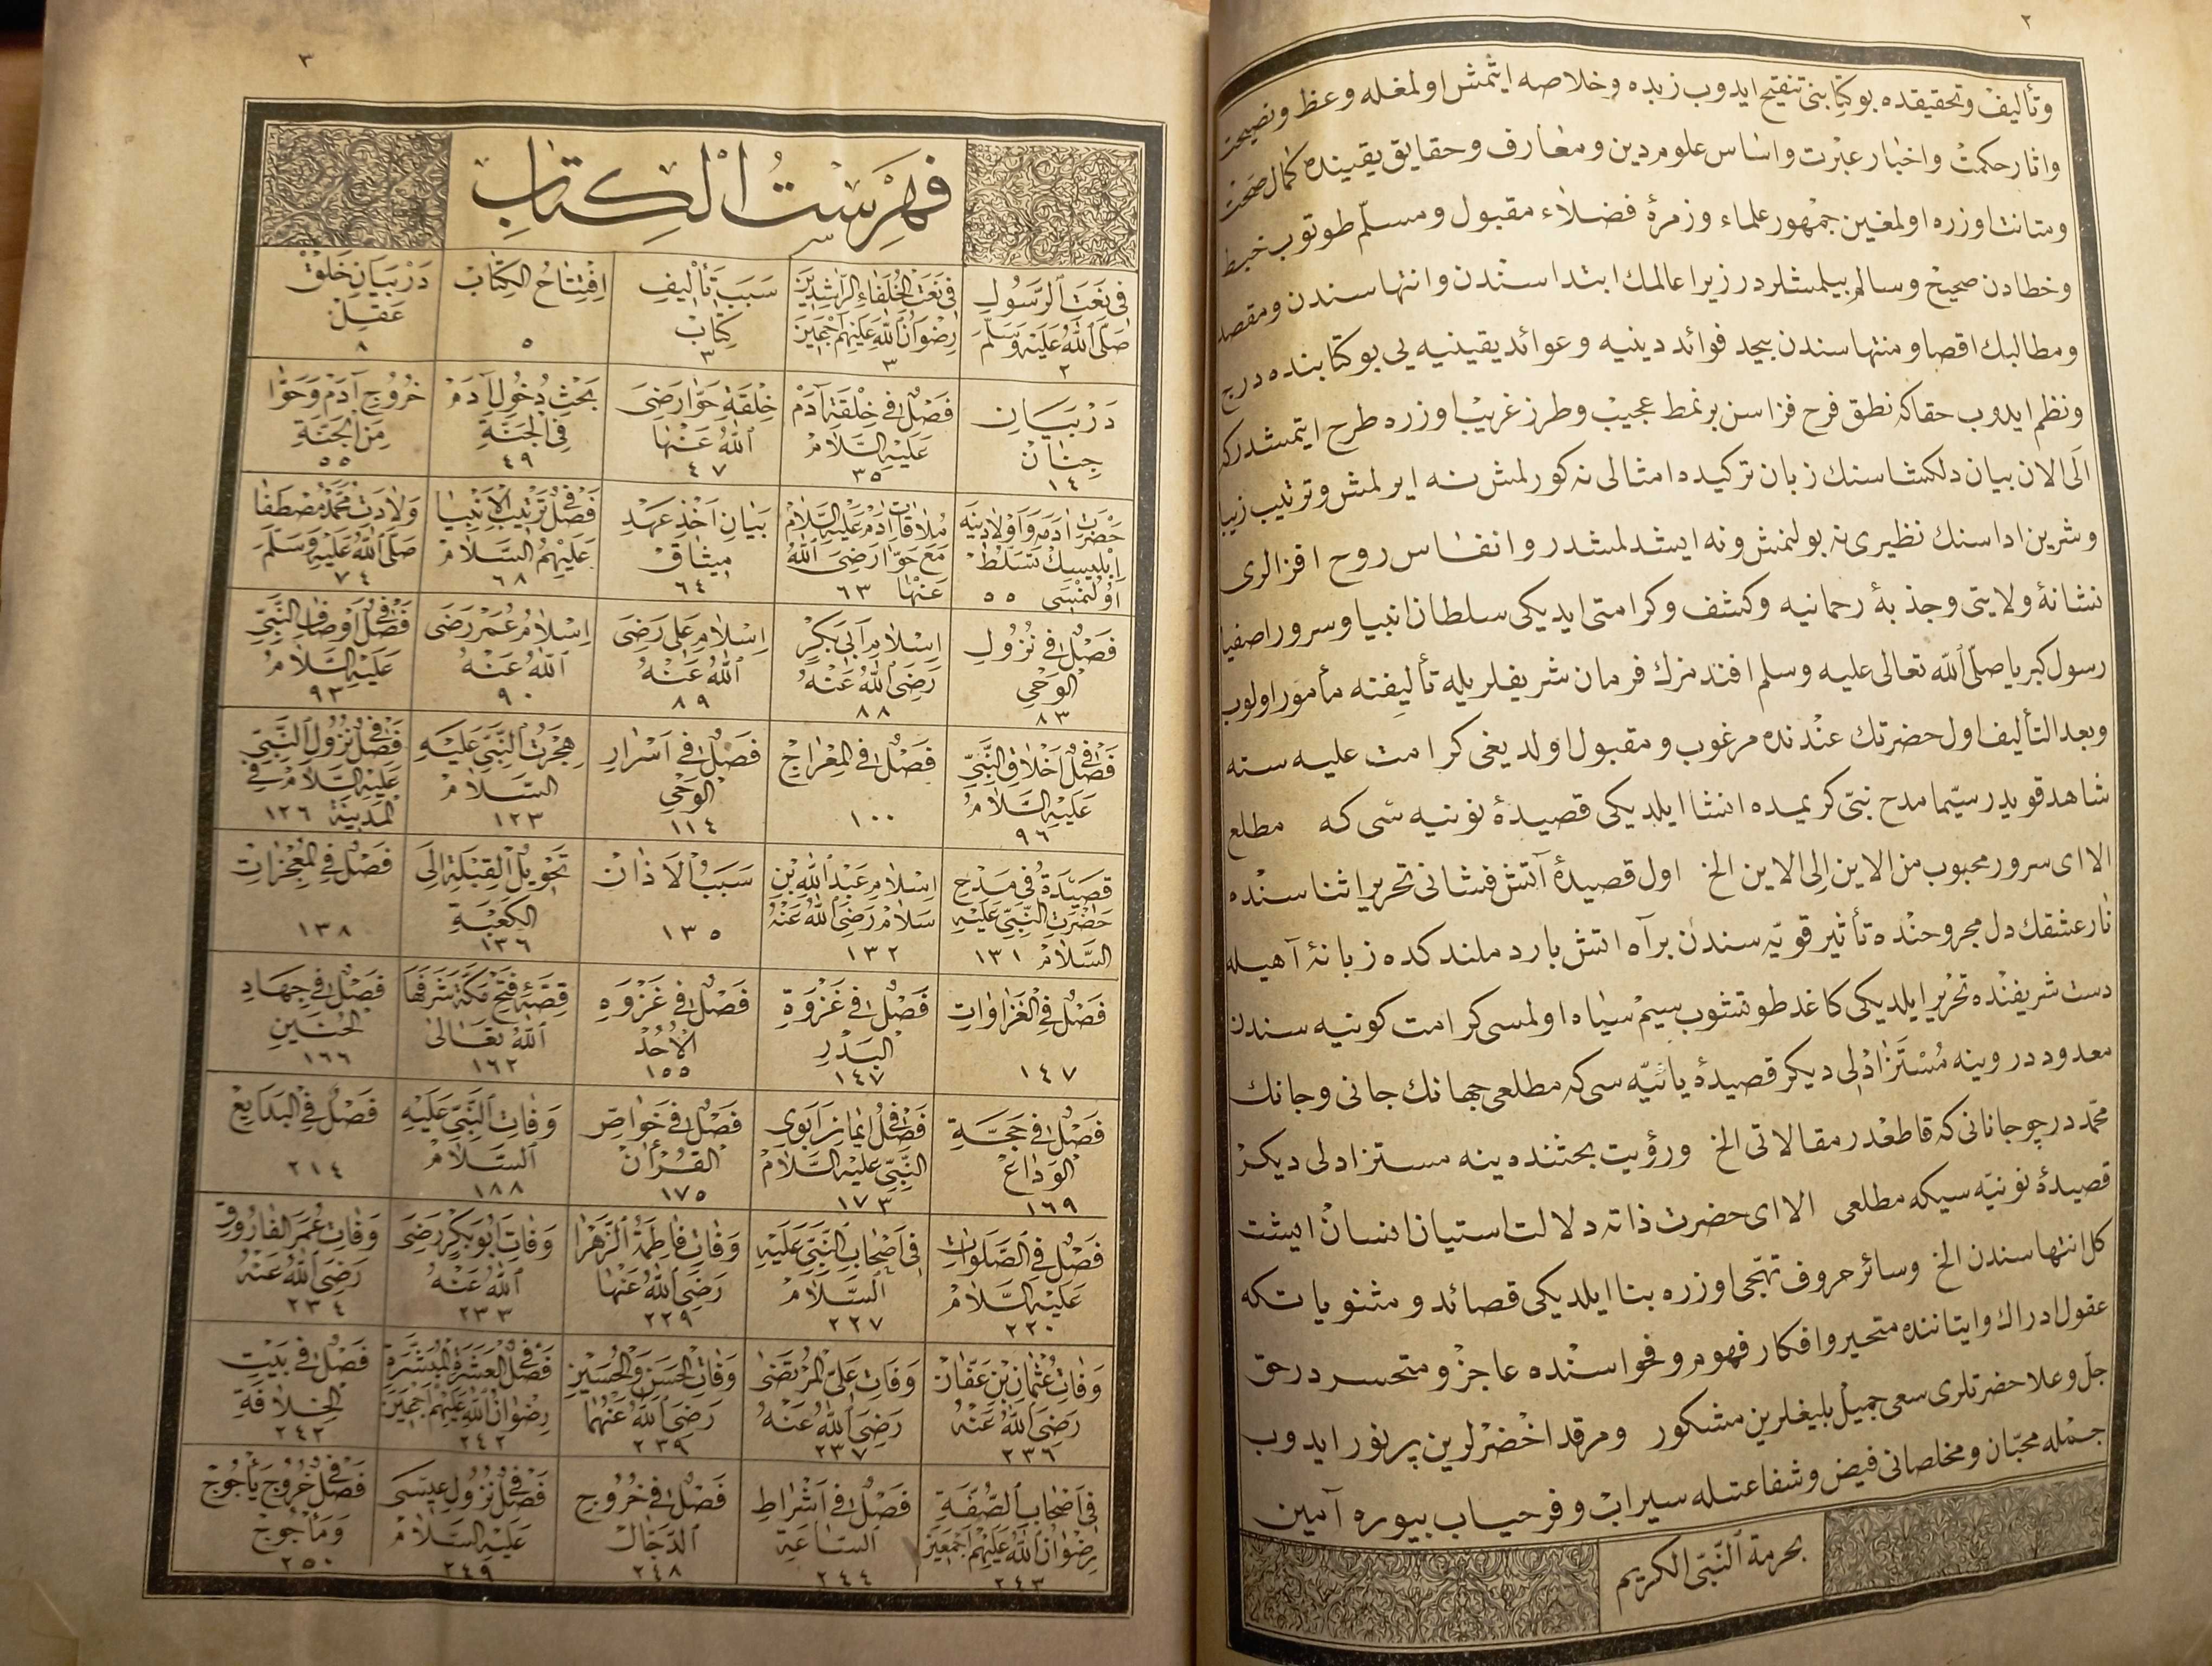 ٢
وتأليف وتحقيقده بو كتابنى تنقيح ايدوب زبده وخلاصه ايتمش اولمغله وعظ ونصيحت
واثار حكمت واخبار عبرت واساس علوم دين ومعارف وحقايق يقينده كمال صحت
ومتانت اوزره اولمغين جمهور علماء وزمرۀ فضلاء مقبول ومسلّم طوتوب خبط
وخطادن صحيح وسالم بيلمشلردر زيرا عالمك ابتداسندن وانتهاسندن ومقصد
ومطالبك اقصا ومنتهاسندن بيحد فوائد دينيه وعوائد يقينيه يى بو كتابنده درج
ونظم ايدوب حقاكه نطق فرح فزاسن بر نمط عجيب وطرز غريب اوزره طرح ايتمشدركه
الى الان بيان دلكشاسنك زبان تركيده امثالى نه كورلمش نه ايرلمش وترتيب زيبا
وشرين اداسنك نظيرى نه بولنمش ونه ايشدلمشدر وانفاس روح افزالرى
نشانۀ ولايتى وجذبۀ رحمانيه وكشف وكرامتى ايديكى سلطان انبيا وسرور اصفيا
رسول كبريا صلّى الله تعالى عليه وسلم افندمزك فرمان شريفلريله تأليفنه مأمور اولوب
وبعد التأليف اول حضرتك عندنده مرغوب ومقبول اولديغى كرامت عليه سنه
شاهد قويدر سيّما مدح نبىّ كريمده انشا ايلديكى قصيدۀ نونيه سى كه مطلع
الا اى سرور محبوب من الاين الى الاين الخ اول قصيدۀ آتش فشانى تحرير اثناسنده
نار عشقك دل مجروحنده تأثير قويّه سندن بر آه اتش بار دملندكده زبانۀ آهيله
دست شريفنده تحرير ايلديكى كاغد طوتشوب سيم سياه اولمسى كرامت كونيه سندن
معدوددر وينه مُسْتَزَادْلى ديكر قصيدۀ يائيّه سى كه مطلعى جهانك جانى وجانك
محمّددر چو جانانى كه قاطعدر مقالاتى الخ ورؤيت بحثنده ينه مستزادلى ديكر
قصيدۀ نونيّه سيكه مطلعى الا اى حضرت ذاته دلالت استيان انسان ايشت
كل انتهاسندن الخ وسائر حروف تهجّى اوزره بنا ايلديكى قصائد ومثنوياتكه
عقول ادراك وايتاننده متحير وافكار فهوم وفحواسنده عاجز ومتحسردر حق
جلّ وعلا حضرتلرى سعى جميل بليغلرين مشكور ومرقد اخضرلرين پرنور ايدوب
جمله محبّان ومخلصانى فيض وشفاعتله سيراب وفرحياب بيوره آمين
بحرمة النّبىّ الكريم
٣
فِهْرِسْتُ الْكِتَابِ
فى نعت الرسول صلى الله عليه وسلم ٢
فى نعت الخلفاء الراشدين رضوان الله عليهم اجمعين ٣
سبب تأليف كتاب ٣
افتتاح الكتاب ٥
در بيان خلق عقل ٨
در بيان جنان ١٤
فصل فى خلقة آدم عليه السلام ٣٥
خلقة حوا رضى الله عنها ٤٧
بحث دخول آدم فى الجنة ٤٩
خروج آدم وحوا من الجنة ٥٥
حضرت ادم واولادينه ابليسك تسلط اولنمسى ٥٥
ملاقات ادم عليه السلام مع حوا رضى الله عنها ٦٣
بيان اخذ عهد ميثاق ٦٤
فصل فى ترتيب الانبيا عليهم السلام ٦٨
ولادت محمد مصطفا صلى الله عليه وسلم ٧٤
فصل فى نزول الوحى ٨٣
اسلام ابى بكر رضى الله عنه ٨٨
اسلام على رضى الله عنه ٨٩
اسلام عمر رضى الله عنه ٩٠
فصل فى اوصاف النبى عليه السلام ٩٣
فصل فى اخلاق النبى عليه السلام ٩٦
فصل فى المعراج ١٠٠
فصل فى اسرار الوحى ١١٤
هجرت النبى عليه السلام ١٢٣
فصل فى نزول النبى عليه السلام فى المدينة ١٢٦
قصيدة فى مدح حضرت النبى عليه السلام ١٣١
اسلام عبد الله بن سلام رضى الله عنه ١٣٢
سبب الاذان ١٣٥
تحويل القبلة الى الكعبة ١٣٦
فصل فى المعجزات ١٣٨
فصل فى الغزاوات ١٤٧
فصل فى غزوة البدر ١٤٧
فصل فى غزوه الاحد ١٥٥
قصۀ فتح مكة شرفها الله تعالى ١٦٢
فصل فى جهاد الحنين ١٦٦
فصل فى حجة الوداع ١٦٩
فصل فى ايمان ابوى النبى عليه السلام ١٧٣
فصل فى خواص القرآن ١٧٥
وفات النبى عليه السلام ١٨٨
فصل فى البدايع ٢١٤
فصل فى الصلوات عليه السلام ٢٢٠
فى اصحاب النبى عليه السلام ٢٢٧
وفات فاطمة الزهرا رضى الله عنها ٢٢٩
وفات ابو بكر رضى الله عنه ٢٣٣
وفات عمر الفاروق رضى الله عنه ٢٣٤
وفات عثمان بن عفان رضى الله عنه ٢٣٦
وفات على المرتضى رضى الله عنه ٢٣٧
وفات الحسن والحسين رضى الله عنهما ٢٣٩
فصل فى العشرة المبشرة رضوان الله عليهم اجمعين ٢٤٢
فصل فى بيت الخلافة ٢٤٢
فى اصحاب الصفة رضوان الله عليهم اجمعين ٢٤٣
فصل فى اشراط الساعة ٢٤٤
فصل فى خروج الدجال ٢٤٨
فصل فى نزول عيسى عليه السلام ٢٤٩
فصل فى خروج يأجوج ومأجوج ٢٥٠